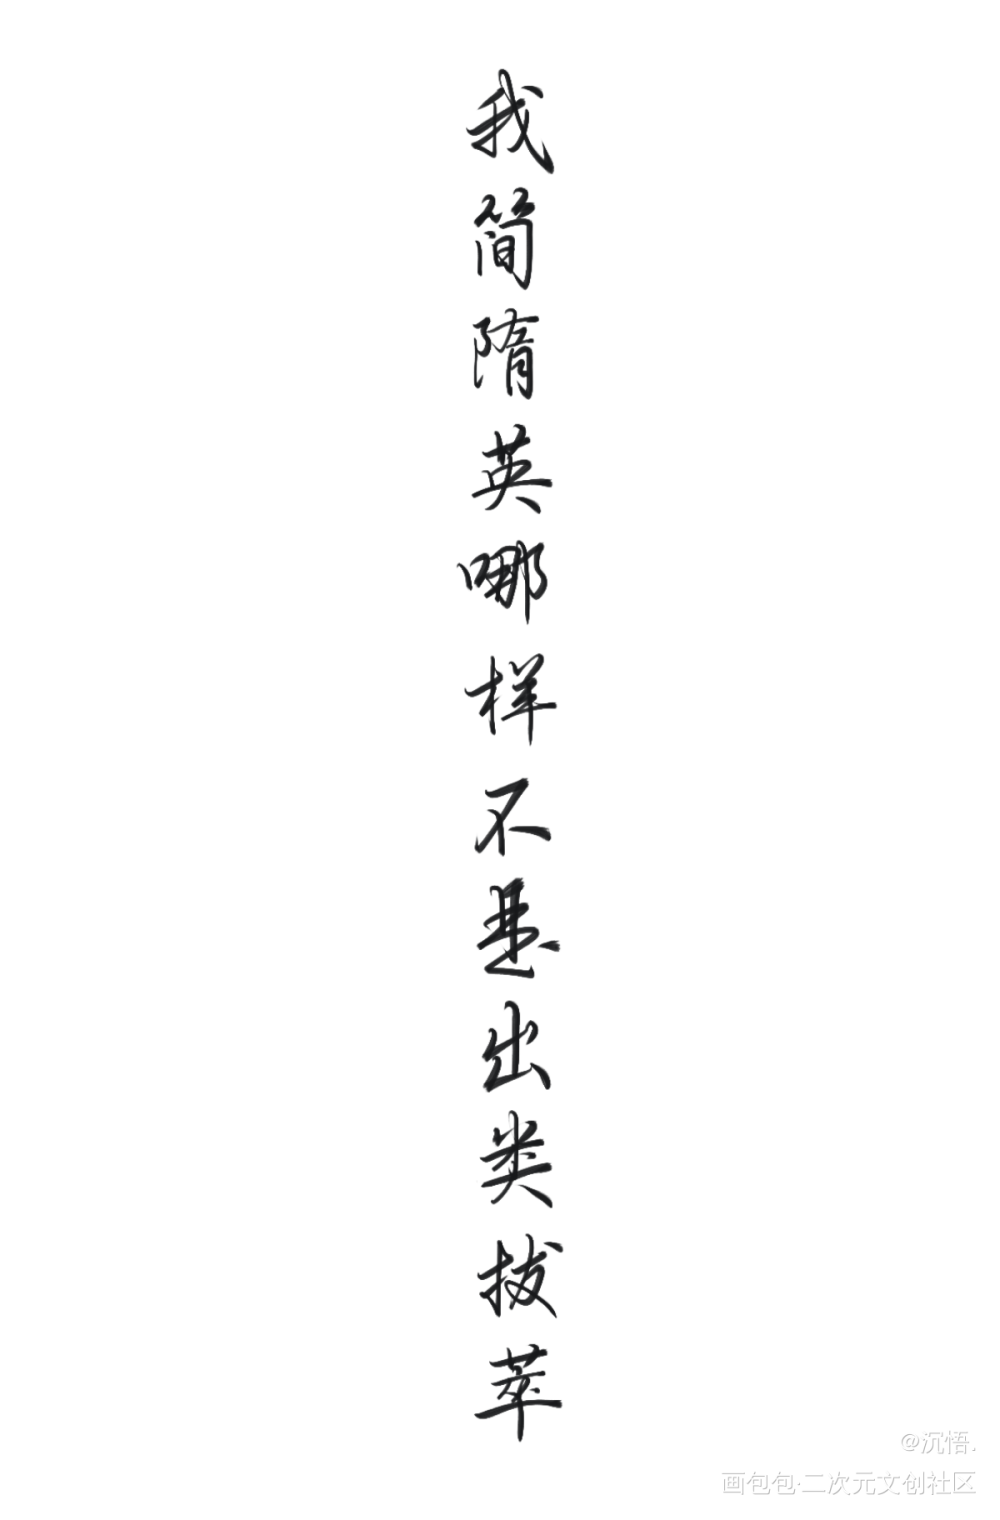 我简隋英哪样不是出类拔萃
@沉悟.
画包包·二次元文创社区